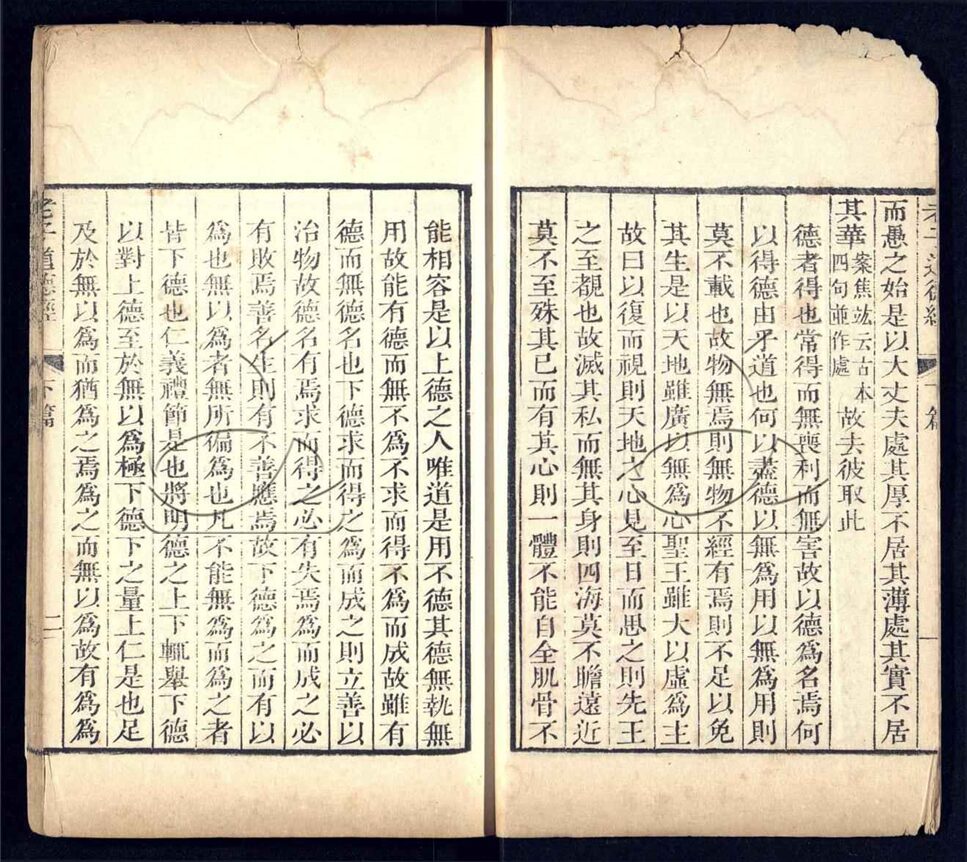 老子道德經 下篇 一
而愚之始是以大丈夫處其厚不居其薄處其實不居
其華案焦竑云古本四句並作處故去彼取此
德者得也常得而無喪利而無害故以德爲名焉何
以得德由乎道也何以盡德以無爲用以無爲用則
莫不載也故物無焉則無物不經有焉則不足以免
其生是以天地雖廣以無爲心聖王雖大以虛爲主
故曰以復而視則天地之心見至日而思之則先王
之至覩也故滅其私而無其身則四海莫不贍遠近
莫不至殊其已而有其心則一體不能自全肌骨不
能相容是以上德之人唯道是用不德其德無執無
用故能有德而無不爲不求而得不爲而成故雖有
德而無德名也下德求而得之爲而成之則立善以
治物故德名有焉求而得之必有失焉爲而成之必
有敗焉善名生則有不善應焉故下德爲之而有以
爲也無以爲者無所徧爲也凡不能無爲而爲之者
皆下德也仁義禮節是也將明德之上下輒舉下德
以對上德至於無以爲極下德下之量上仁是也足
及於無以爲而猶爲之焉爲之而無以爲故有爲爲
老子道德經 下篇 二